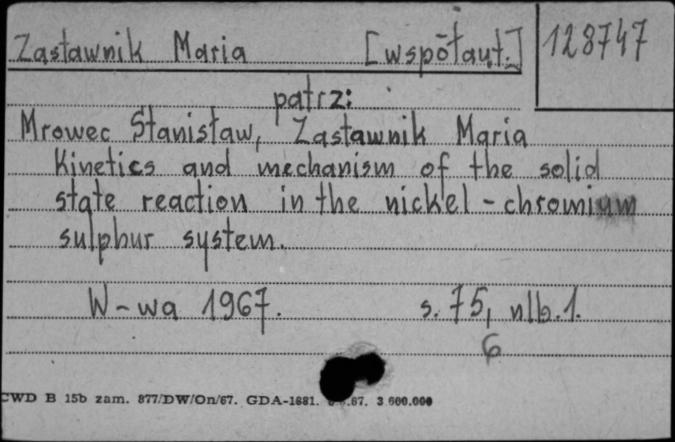 Zastawnik Maria [współaut.] 128747
patrz:
Mrowec Stanisław, Zastawnik Maria
Kinetics and mechanism of the solid
state reaction in the nickel-chromium
sulphur system.
W-wa 1967. s. 75, nlb. 1.
6
CWD B 15b zam. 877/DW/On/67. GDA-1681. .67. 3.600.000